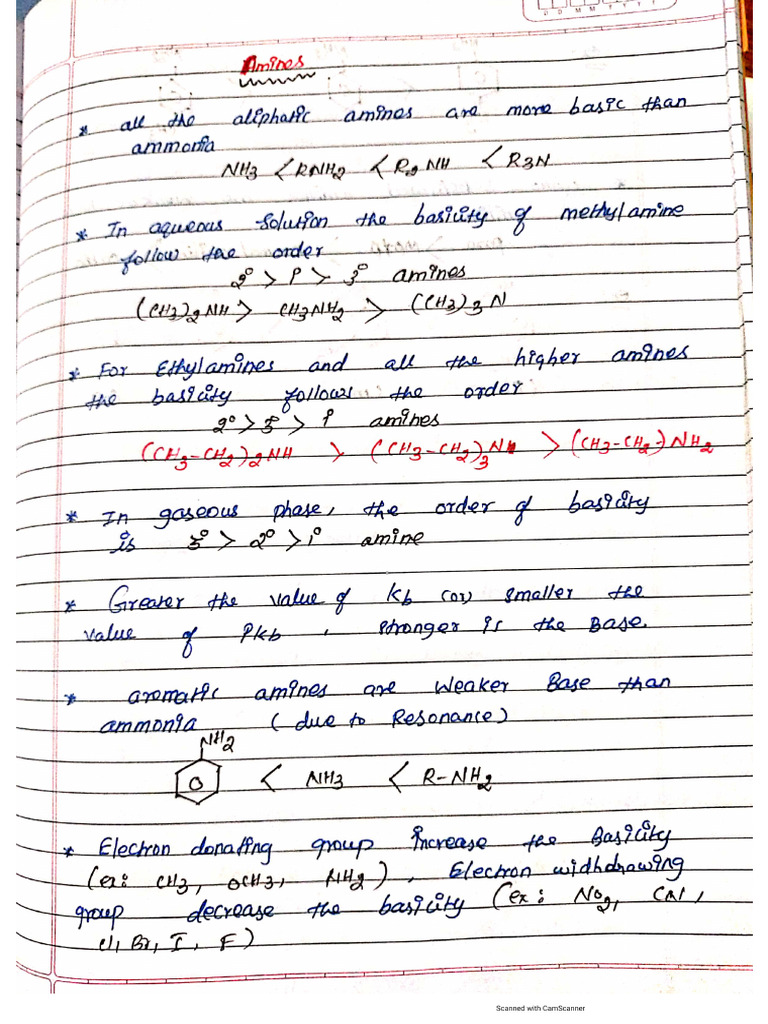 Amines
* all the aliphatic amines are more basic than
ammonia
NH3 < RNH2 < R2NH < R3N
* In aqueous solution the basicity of methylamine
follow the order
2° > 1° > 3° amines
(CH3)2NH > CH3NH2 > (CH3)3N
* For Ethylamines and all the higher amines
the basicity follows the order
2° > 3° > 1° amines
(CH3-CH2)2NH > (CH3-CH2)3N > (CH3-CH2)NH2
* In gaseous phase, the order of basicity
is 3° > 2° > 1° amine
* Greater the value of Kb (or) smaller the
value of Pkb, stronger is the Base.
* aromatic amines are weaker Base than
ammonia (due to Resonance)
NH2
< NH3 < R-NH2
* Electron donating group increase the Basicity
(ex: CH3, OCH3, NH2), Electron widhdrawing
group decrease the basicity (ex: NO2, CN,
Cl, Br, I, F)
Scanned with CamScanner